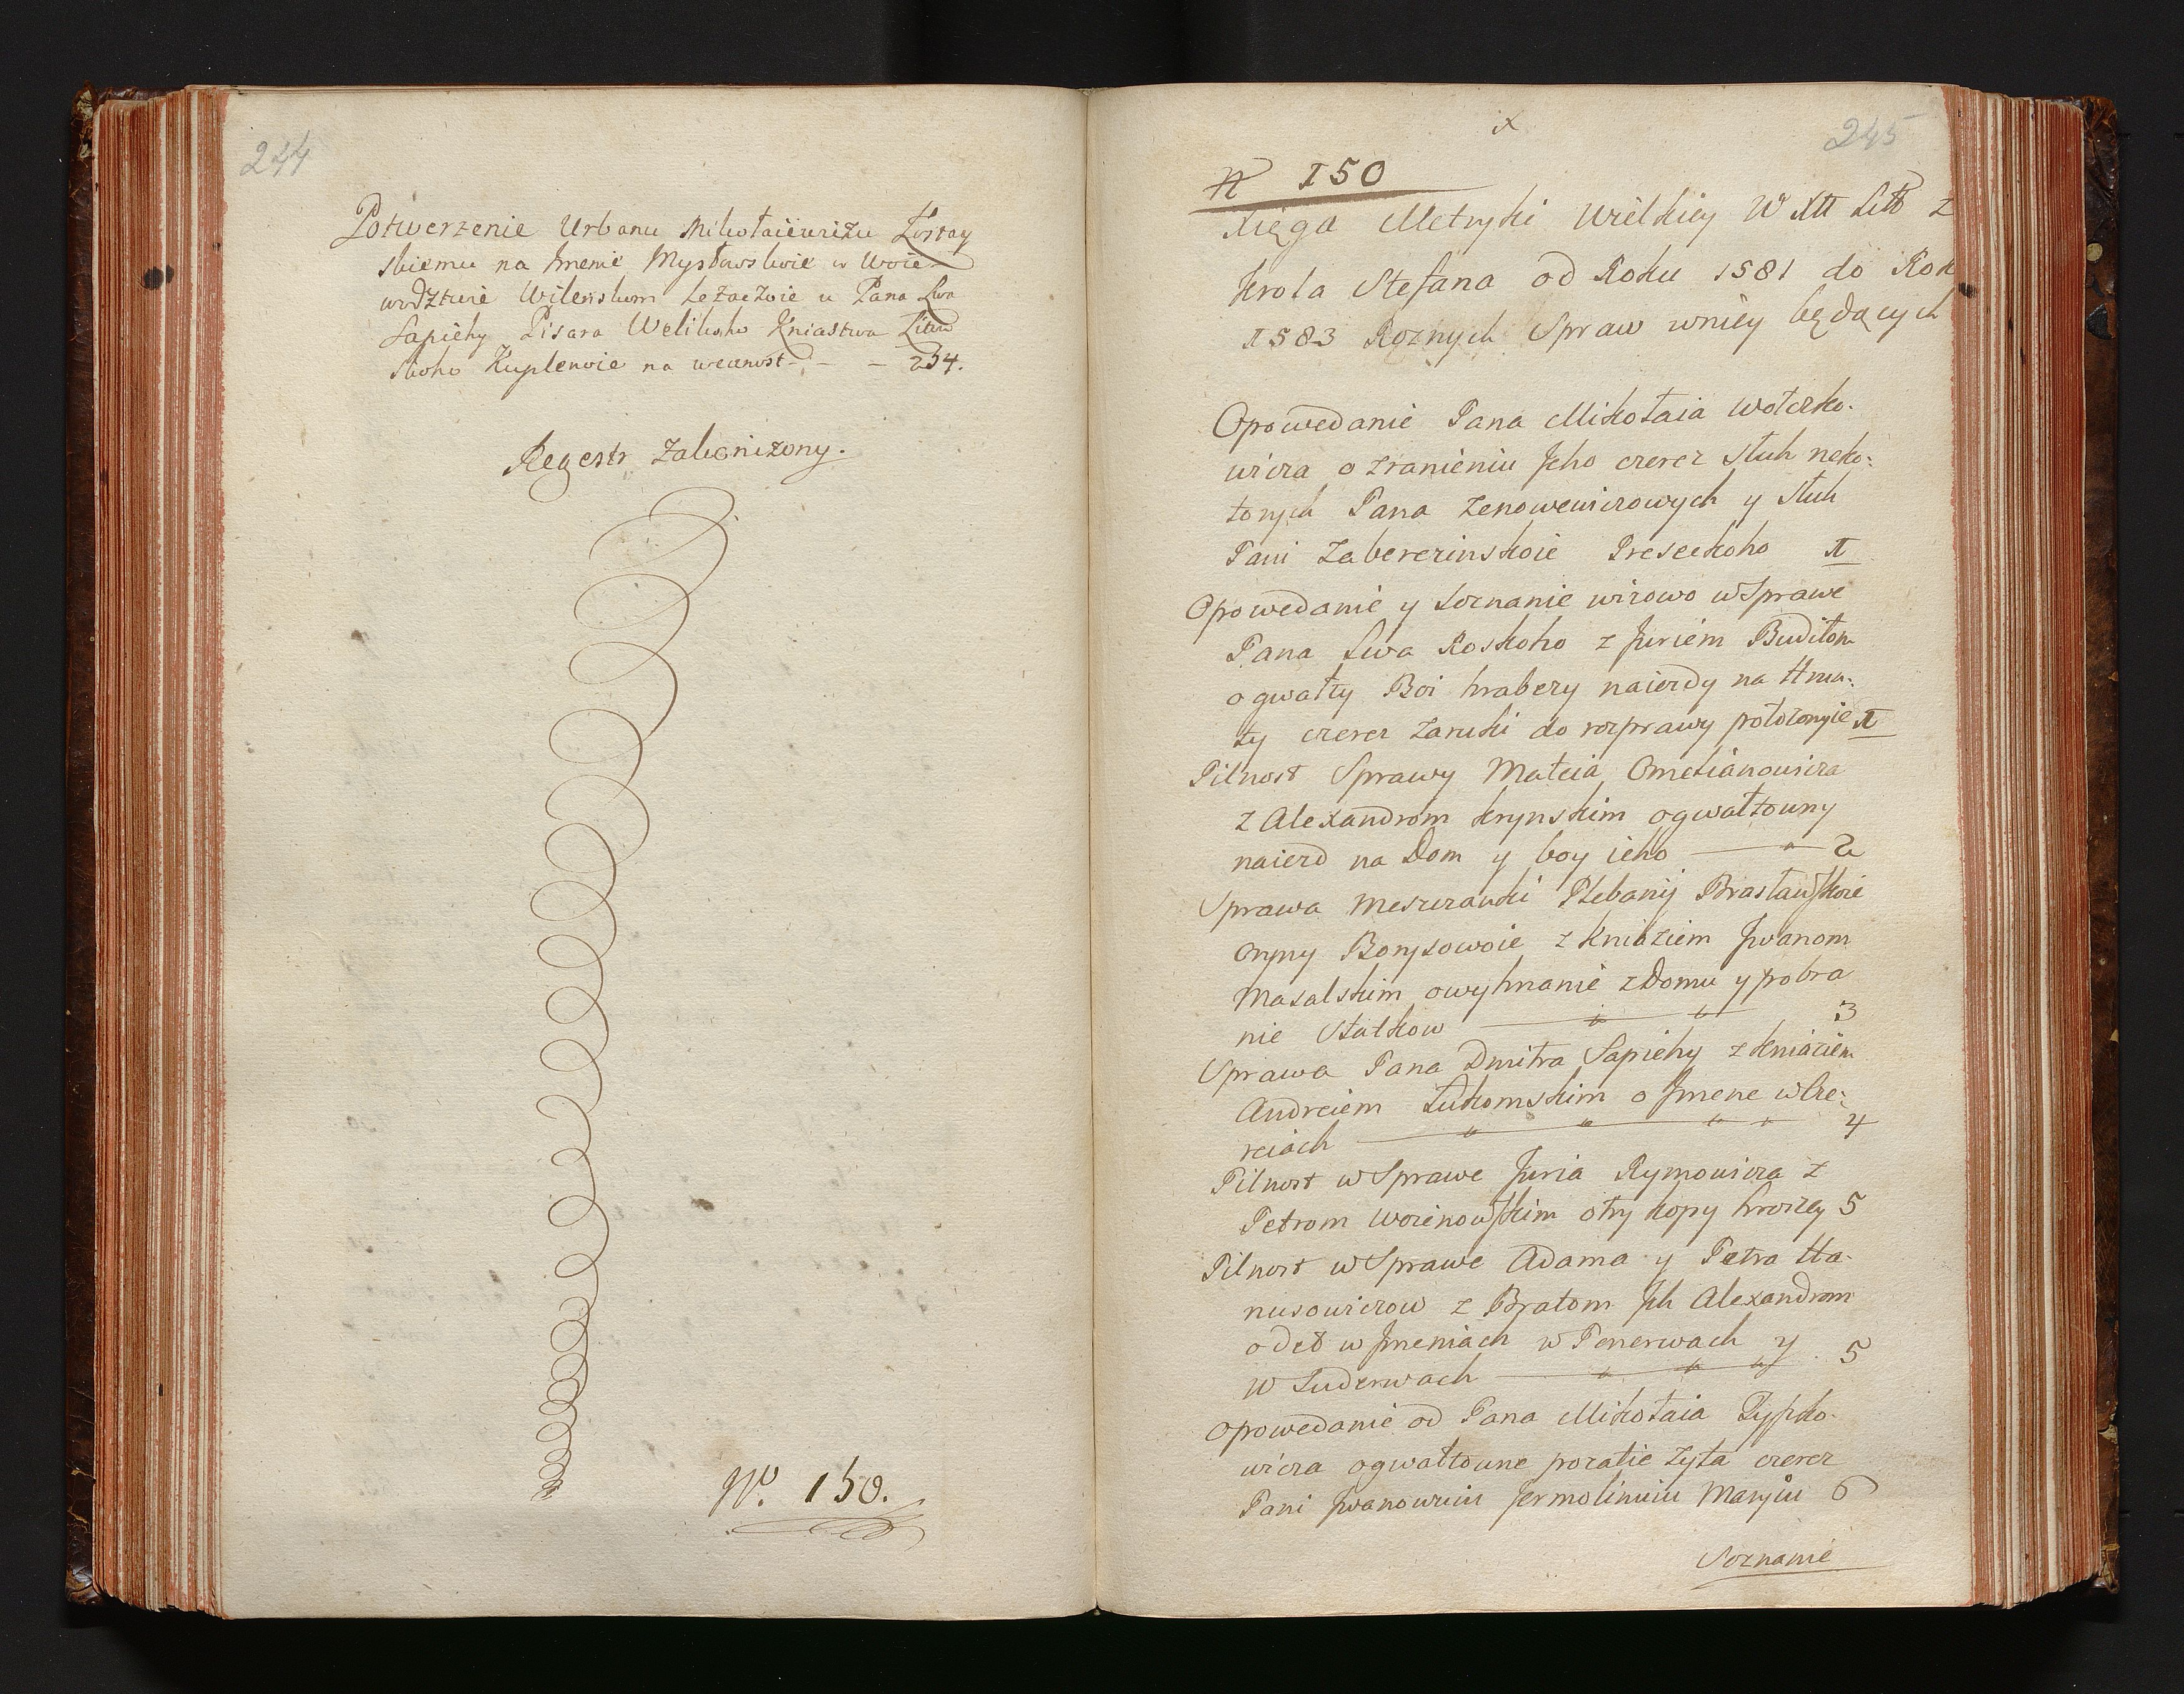 244
Potwerzenie Urbanu Mikołaiewiżu
skiemu na Imenie Mysławskoie w Woie
wodztwie Wilenskom Leżaczoie u Pana Lwa
Sapiehy Pisara Welikoho Kniastwa Litew
skoho Kuplenoie na wecznost - - 234.
Regestr Zakoniżony.
No. 150.
245
N 150
Xięga Metryki Wielkiey W XII Litt z
Krola Stefana od Roku 1581 do Rok
1583 Roznych Spraw wniey będących
Opowedanie Pana Mikołaia Wołczko-
wicza o zranieniu Jeho czerez słuh neko-
torych Pana Zenowewiczowych y słuh
Pani Zaberezinskoie Preseckoho 1
Opowedanie y Soznanie wizowo w Sprawe
Pana Lwa Roskoho z Juriem Budiłom
o gwałty Boi hrabezy naiezdy na Hru-
ty czerez Zaruki do rozprawy położonyie 1
Pilnost Sprawy Mateia Omelianowicza
z Alexandrom Krynskim ogwałtowny
naiezd na Dom y boy ieho 2
Sprawa Meszczanki Plebanij Brasławskoie
Oryny Borysowoie z Kniaziem Iwanom
Masalskim owyhnanie z Domu y pobra
nie Statkow 3
Sprawa Pana Dmitra Sapiehy z Kniaziem
Andreiem Łukomskim o Imene w Cze-
reiach 4
Pilnost w Sprawe Juria Rymowicza z
Petrom Woienowskim otry kopy hroszey 5
Pilnost w Sprawe Adama y Petra Ha-
nusowiczow z Bratom Jch Alexandrom
o deł w Imeniach w Ponerwach y
w Suderwach 5
Opowedanie od Pana Mikołaia
wicza ogwałtowne pożatie żyta czerez
Pani Iwanowuiu Jermolinuiu Maryiu 6
Soznanie